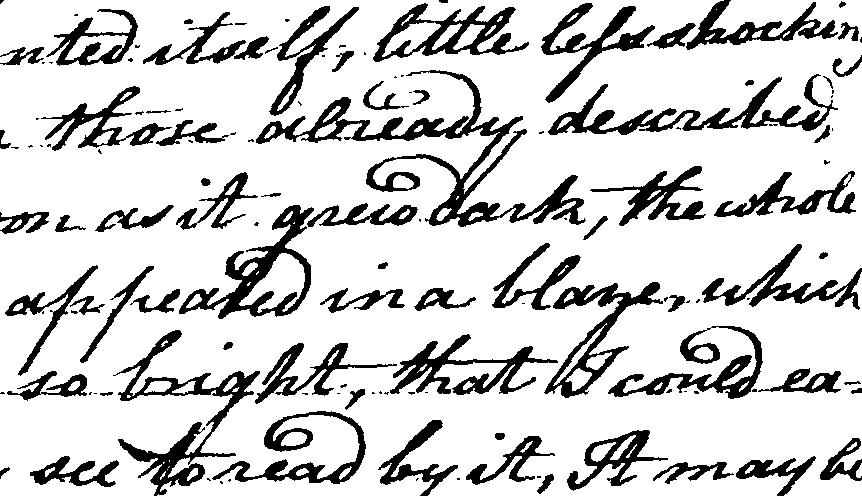 nted itself, little less shocking
those already described,
on as it grew dark, the whole
appeared in a blaze, which
so bright, that I could ea-
see to read by it, It may be